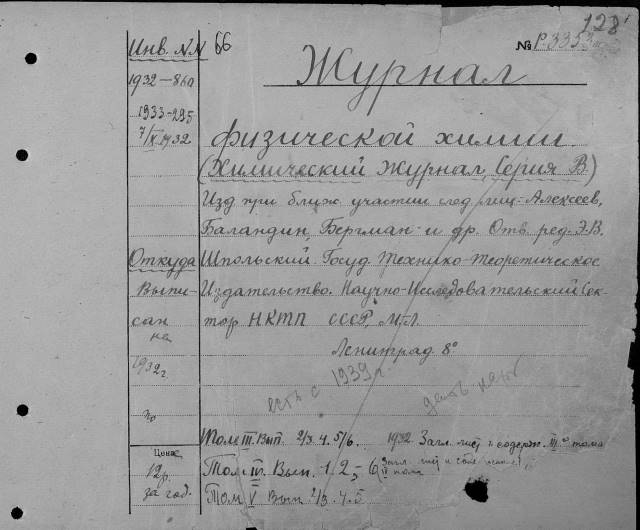 128
Инв. №№ 66
№ Р-3353
Журнал
1932-860
1933-295
7/IX 1932
физической химии.
(Химический журнал, Серия В.)
Изд. при ближ. участии след. лиц: Алексеев,
Баландин, Бергман и др. Отв. ред. Э.В.
Откуда Шпольский. Госуд. Технико-Теоретическое
Выпи- Издательство. Научно-Исследовательский Сек-
сан тор НКТП СССР, М.-Л.
на
Ленинград 8°
1932 г.
есть с 1939 г.
по
Том III. Вып. 2/3. 4. 5/6. 1932. Загл. лист и содерж. III-о тома
Цена:
12 р. Том IV. Вып. 1. 2, - 6
за год. Том V Вып. 2/3. 4. 5